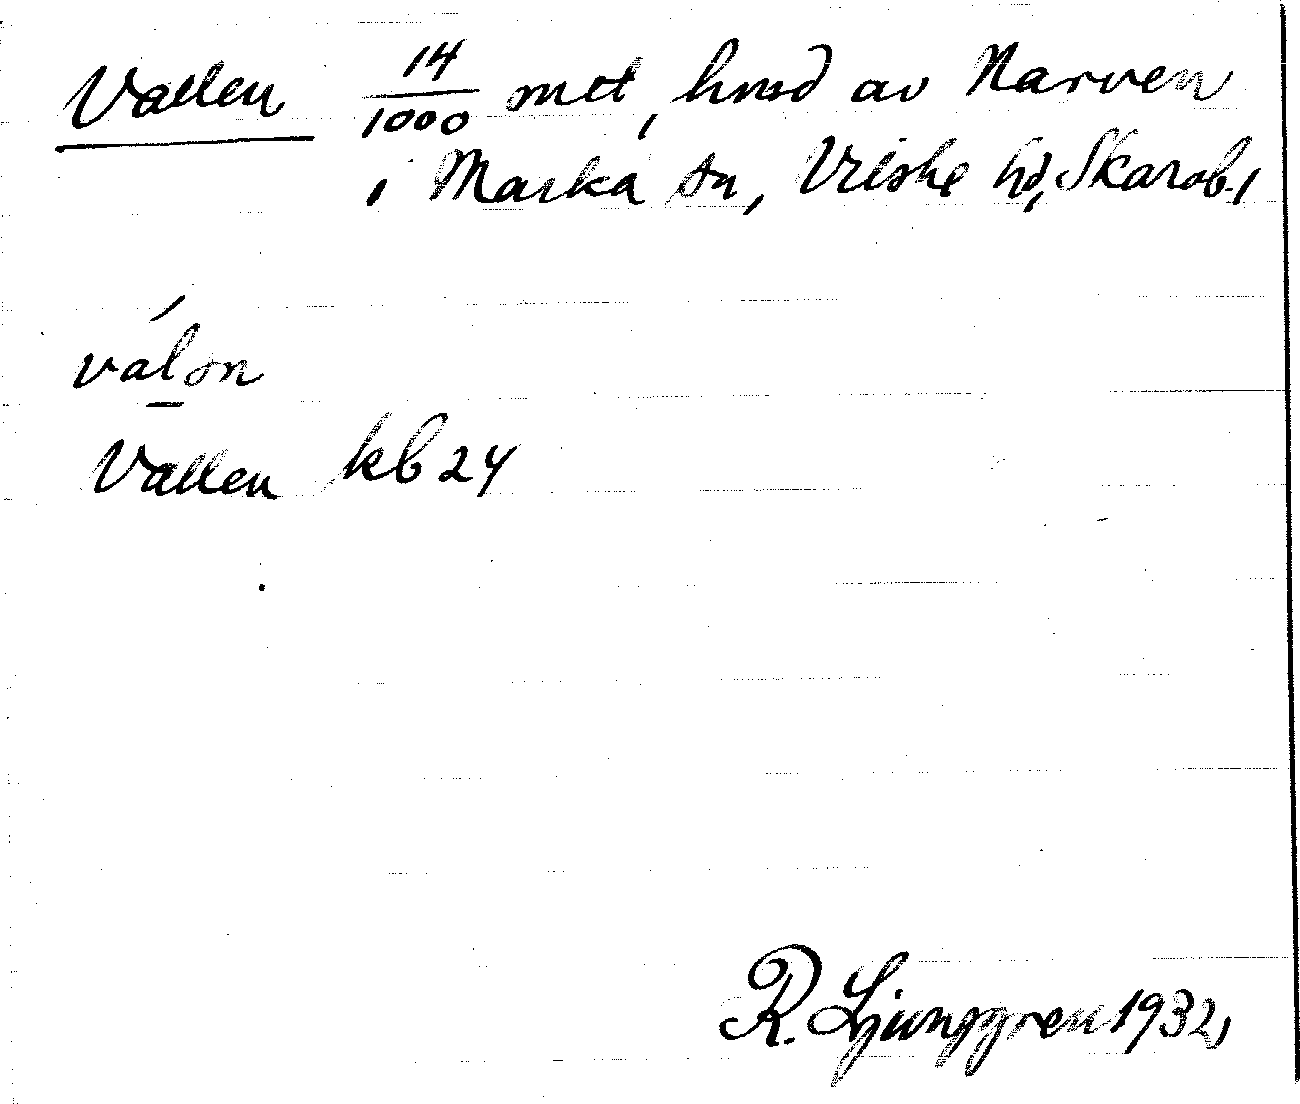 Vallen 14/1000 mtl, hmd av Narven
i Marka sn, Vilske hd, Skarab.
válən
Vallen kb 24
R. Ljunggren 1932,